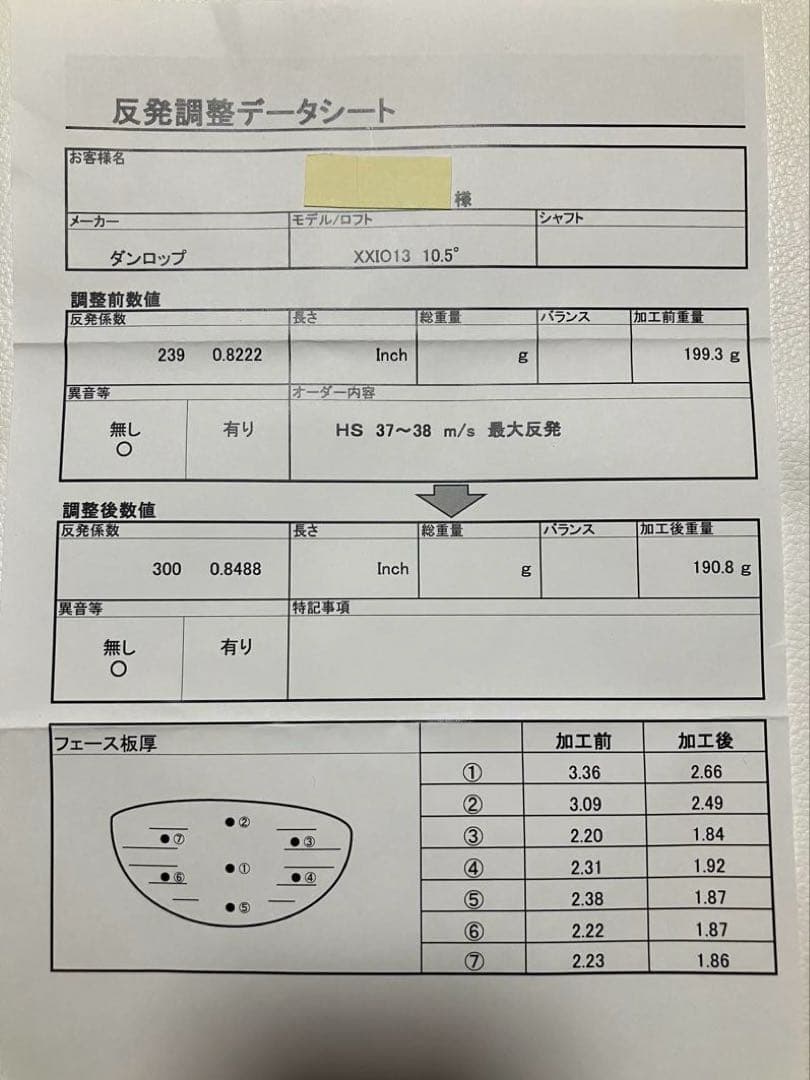 反発調整データシート
お客様名
様
メーカー モデル/ロフト シャフト
ダンロップ XXIO13 10.5°
調整前数値
反発係数 長さ 総重量 バランス 加工前重量
239 0.8222 Inch g 199.3 g
異音等 オーダー内容
無し 有り HS 37～38 m/s 最大反発
○
調整後数値
反発係数 長さ 総重量 バランス 加工後重量
300 0.8488 Inch g 190.8 g
異音等 特記事項
無し 有り
○
フェース板厚 加工前 加工後
① 3.36 2.66
② 3.09 2.49
③ 2.20 1.84
④ 2.31 1.92
⑤ 2.38 1.87
⑥ 2.22 1.87
⑦ 2.23 1.86
②
⑦ ③
①
⑥ ④
⑤